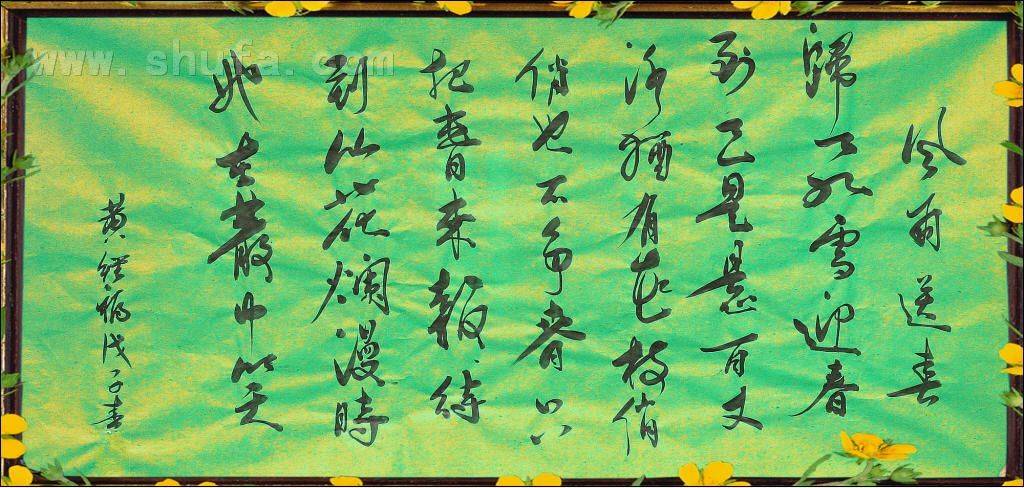 风雨送春
歸飞雪迎春
到已是悬百丈
冰猶有花枝俏
俏也不争春只
把春来報待
到山花爛漫時
她在叢中笑
黄 戊子春
www.shufa.com